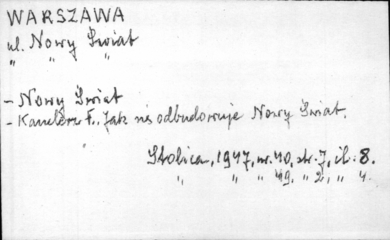 WARSZAWA
ul. Nowy Świat
" " "
- Nowy Świat
- Kanclerz F., Jak się odbudowuje Nowy Świat.
Stolica, 1947, nr. 40, str. 7, il. 8.
" " " 49, " 2, " 4.